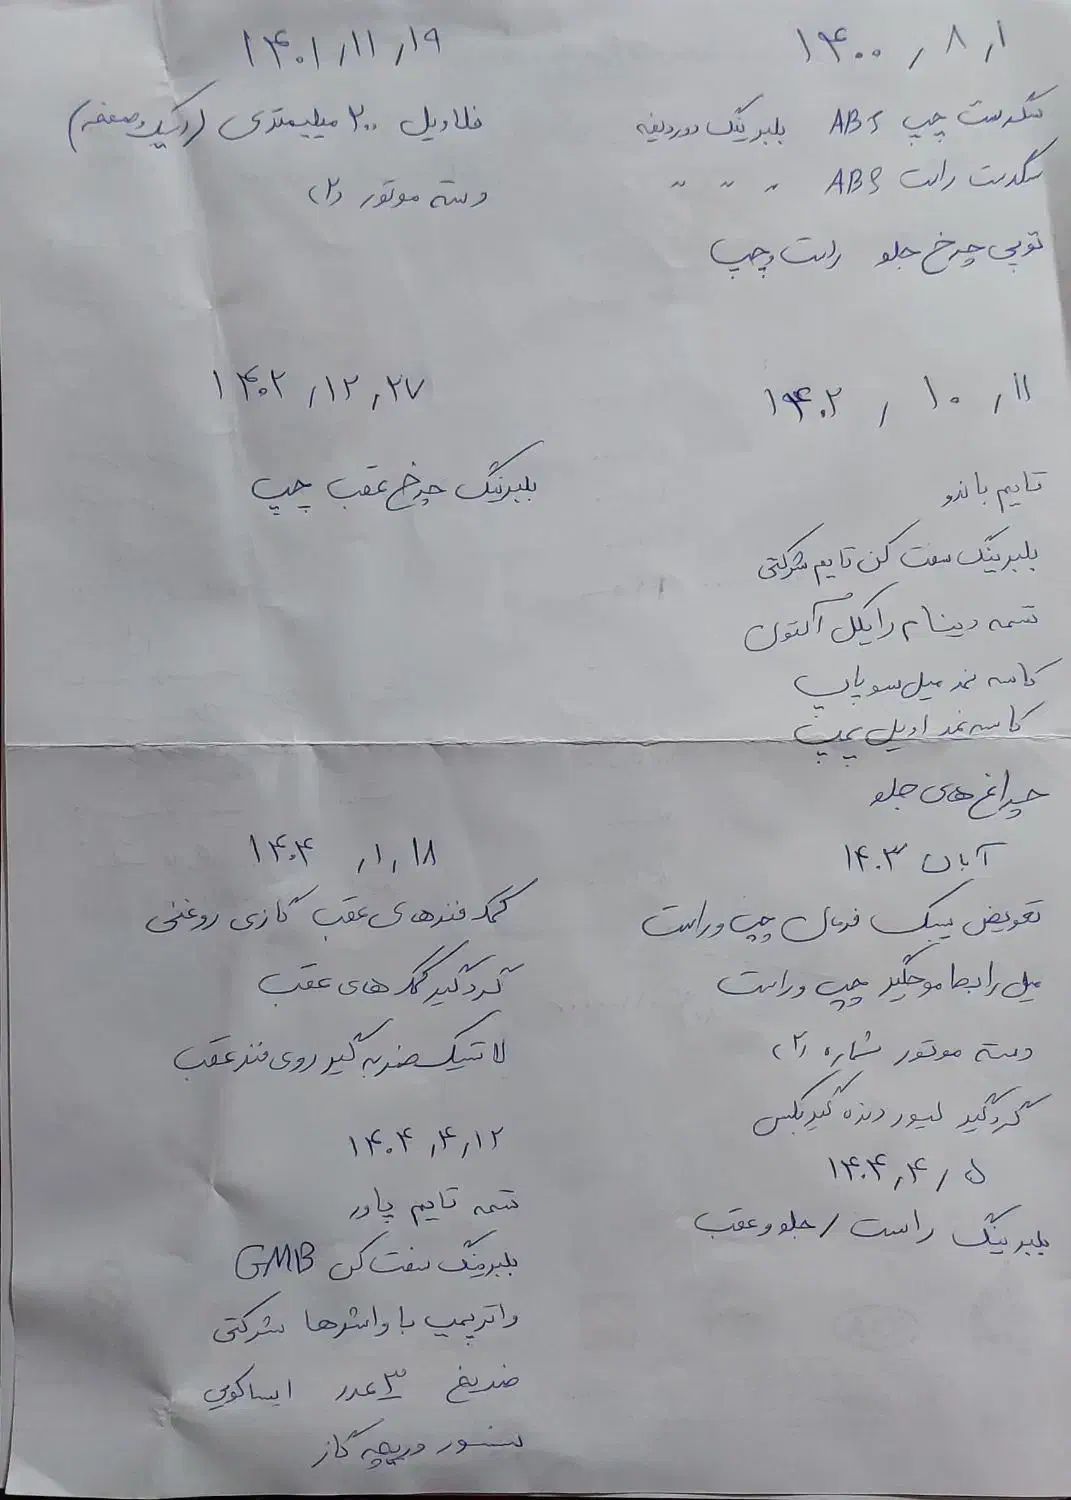 ۱۴۰۰/۸/۱
سگدست چپ ABS بلبرینگ دوردیفه
سگدست راست ABS " " "
توپی چرخ جلو راست و چپ
۱۴۰۱/۱۱/۱۹
فلاویل ۲۰۰ میلیمتری (دیسک و صفحه)
دسته موتور (۲)
۱۴۰۲/۱۰/۱۱
تایم باندو
بلبرینگ سفت کن تایم شرکتی
تسمه دینام رایکل آلتون
کاسه نمد میل سوپاپ
کاسه نمد اویل پمپ
چراغ های جلو
۱۴۰۲/۱۲/۲۷
بلبرینگ چرخ عقب چپ
آبان ۱۴۰۳
تعویض سیبک فرمان چپ و راست
میل رابط موجگیر چپ و راست
دسته موتور شماره (۲)
گردگیر لیور دنده گیربکس
۱۴۰۴/۴/۵
بلبرینگ راست / جلو و عقب
۱۴۰۴/۱/۱۸
کمک فنرهای عقب گازی روغنی
گردگیر کمک های عقب
لاستیک ضربه گیر روی فنر عقب
۱۴۰۴/۴/۱۲
تسمه تایم پاور
بلبرینگ سفت کن GMB
واترپمپ با واشرها شرکتی
ضدیخ ۳ عدد ایساکویی
سنسور دریچه گاز